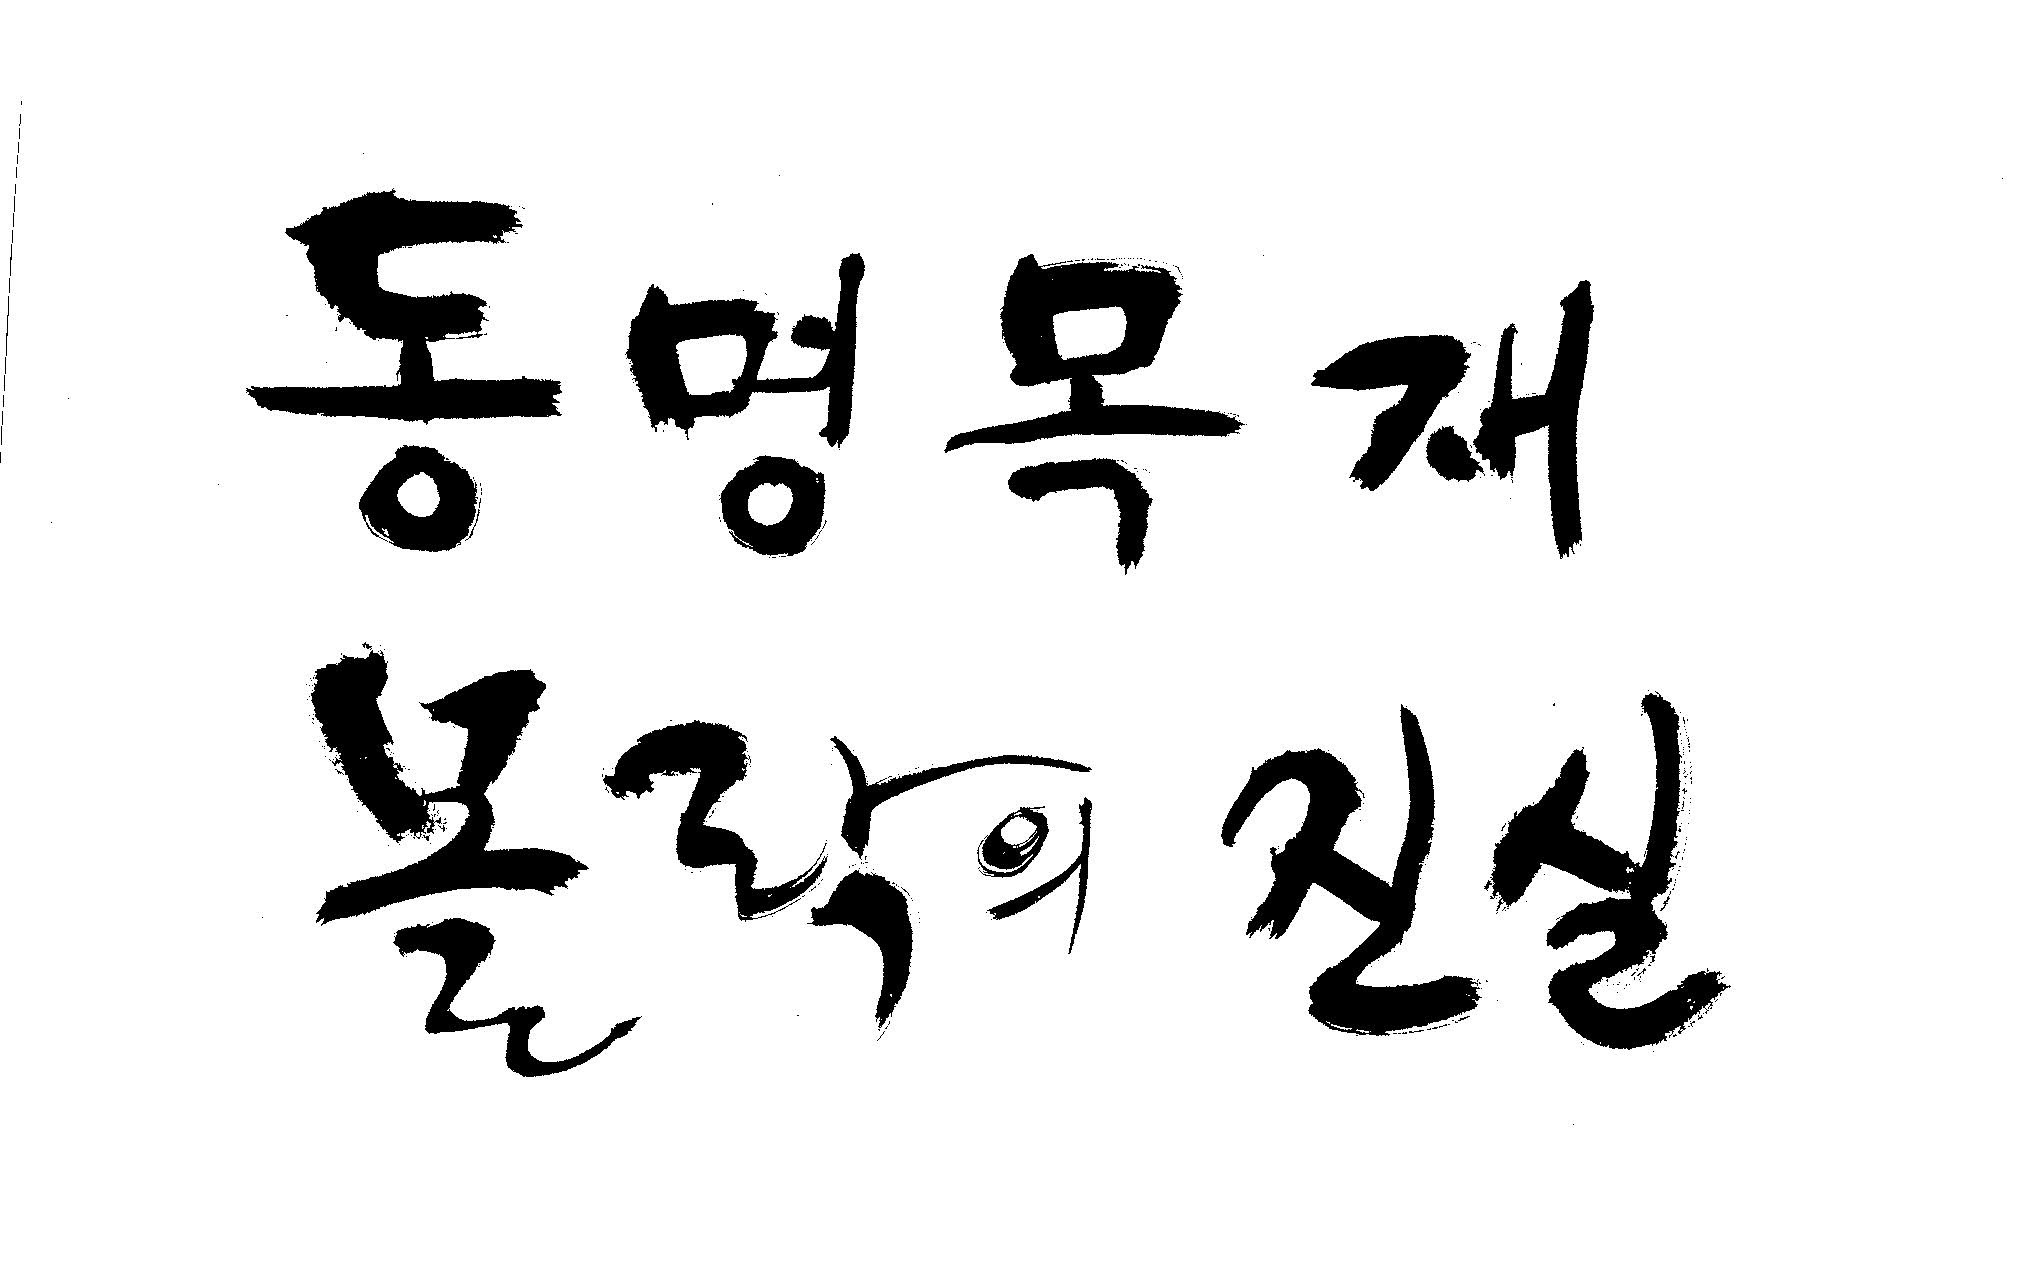 동명목재
몰락의 진실